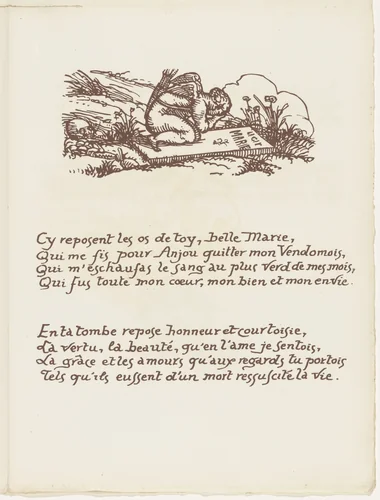 CY GIT
MARIE
Cy reposent les os de toy, belle Marie,
Qui me fis pour Anjou quitter mon Vendomois,
Qui m'eschaufas le sang au plus verd de mes mois,
Qui fus toute mon cœur, mon bien et mon envie.
En ta tombe repose honneur et courtoisie,
La vertu, la beauté, qu'en l'ame je sentois,
La grâce et les amours qu'aux regards tu portois
Tels qu'ils eussent d'un mort ressuscité la vie.